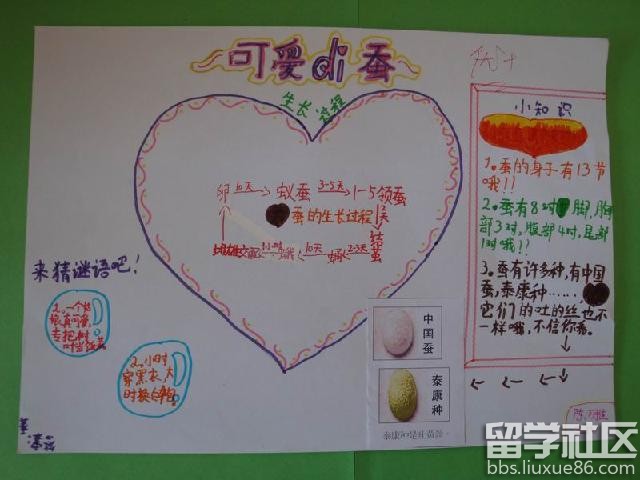 可爱di蚕
生长过程
小知识
1。蚕的身子有13节
哦!!
2。蚕有8对脚,胸
部3对,腹部4对,尾部
1对哦!!
3。蚕有许多种,有中国
蚕,泰康种……
它们的吐的丝也不
一样哦,不信你看。
卵 10天 蚁蚕 3-5天 1-5领蚕
蚕的生长过程
结茧
蛾 10天 蛹 2-3天
来猜谜语吧!
2。小时
穿黑衣,大
时换白袍。
中国蚕
泰康种
留学社区
bbs.liuxue86.com